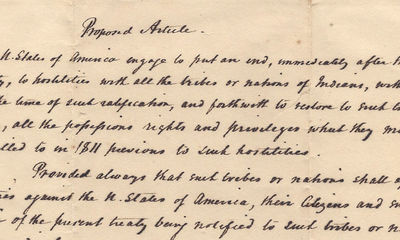 Proposed Article.
U. States of America engage to put an end, immediately after t
ty, to hostilities with all the tribes or nations of Indians, with
time of such ratification, and forthwith to restore to such t
, all the possessions rights and priviledges which they m
lled to in 1811 previous to such hostilities.
Provided always that such tribes or nations shall a
against the U. States of America, their Citizens and su
of the present treaty being notified to such tribes or n